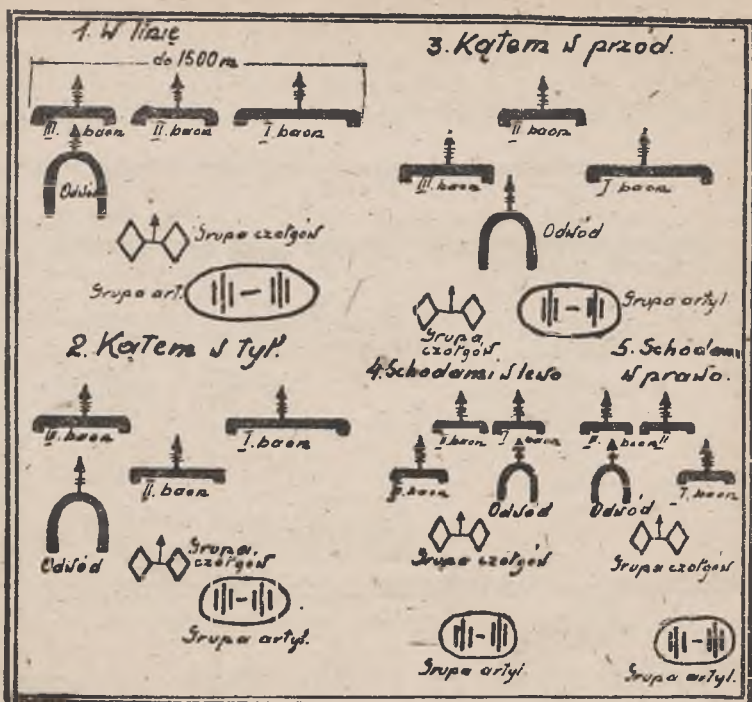 1. W linię
do 1500 m
III. baon II. baon I. baon
Odwód
Grupa czołgów
Grupa art.
2. Kątem w tył.
III. baon I. baon
II. baon
Odwód
Grupa czołgów
Grupa artyl.
3. Kątem w przód.
II baon
III. baon I baon
Odwód
Grupa czołgów
Grupa artyl
4. Schodami w lewo
II baon I baon
baon
Odwód
Grupa czołgów
Grupa artyl
5. Schodami
w prawo.
baon II
I. baon
Odwód
Grupa czołgów
Grupa artyl.